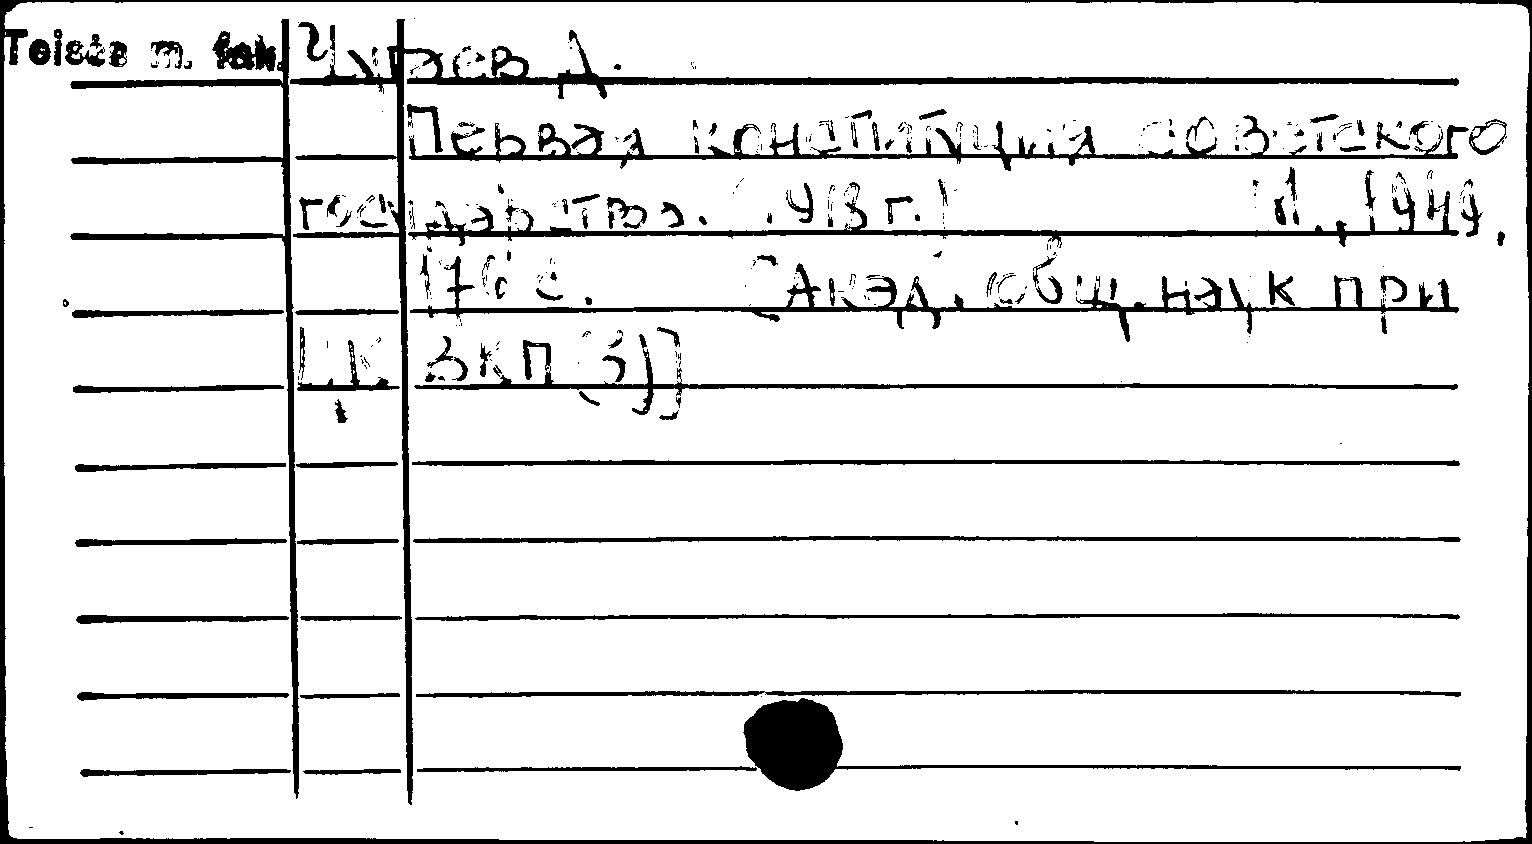 Teisės m. fak. Чугаев Д.
Первая конституция советского
государства. (1918 г.) М., 1949.
176 с. (Акад. общ. наук при
ЦК ВКП(б)]